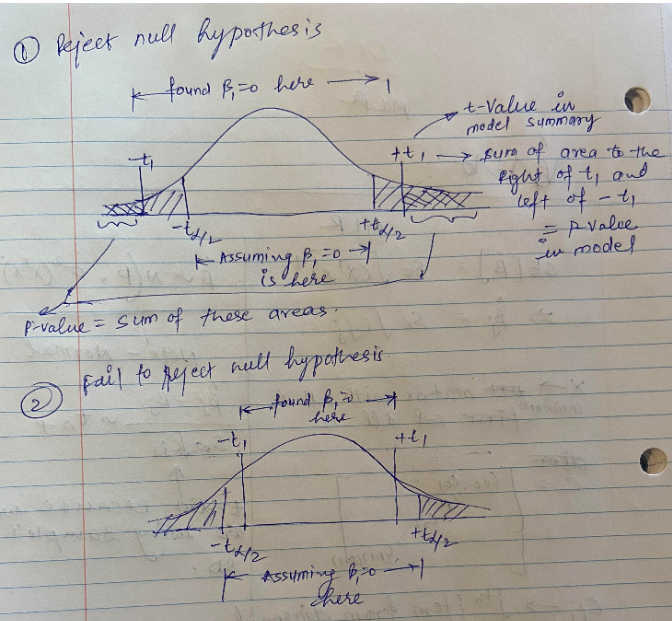 ① Reject null hypothesis
found β₁=0 here
t-value in
model summary
-t₁
+t₁ → sum of area to the
right of t₁ and
left of -t₁
= P-value
in model
-tα/2
+tα/2
Assuming β₁=0
is here
P-value = sum of these areas.
② Fail to reject null hypothesis
found β₁=0
here
-t₁
+t₁
-tα/2
+tα/2
Assuming β₁=0
here